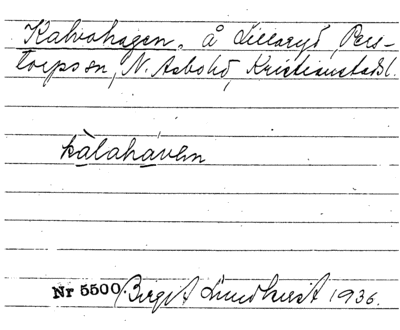 Kalvahagen, å Lillaryd, Pers-
torps sn, N. Åsbohd, Kristianstads l.
kàlahávən
Nr 5500. Birgit Lundkvist 1936.